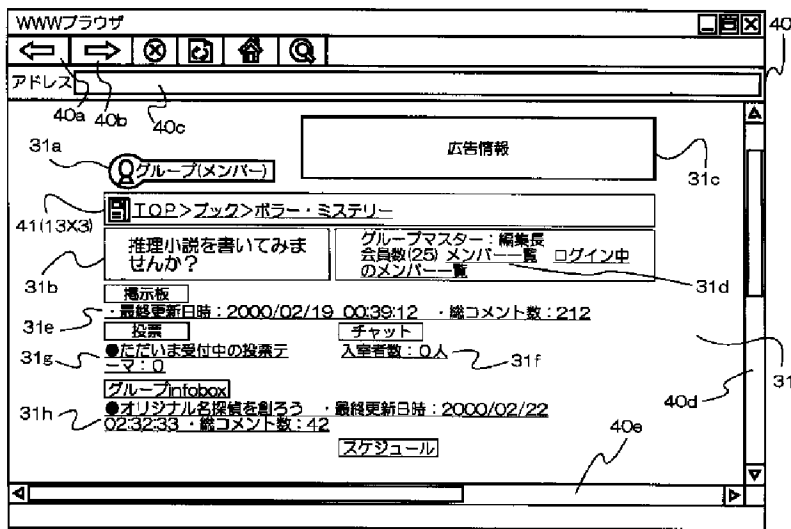 WWWブラウザ
40
アドレス
40a 40b 40c
31a
グループ(メンバー)
広告情報
31c
41(13X3)
TOP>ブック>ボラー・ミステリー
推理小説を書いてみま
せんか?
グループマスター:編集長
会員数(25) メンバー一覧 ログイン中
のメンバー一覧
31b
31d
掲示板
31e
・最終更新日時:2000/02/19 00:39:12 ・総コメント数:212
投票
チャット
31g
●ただいま受付中の投票テ
ーマ:0
入室者数:0人
31f
31
グループinfobox
40d
31h
●オリジナル名探偵を創ろう ・最終更新日時:2000/02/22
02:32:33 ・総コメント数:42
40e
スケジュール